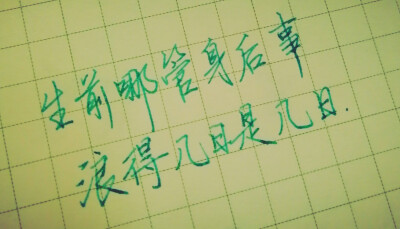 生前哪管身后事
浪得几日是几日.